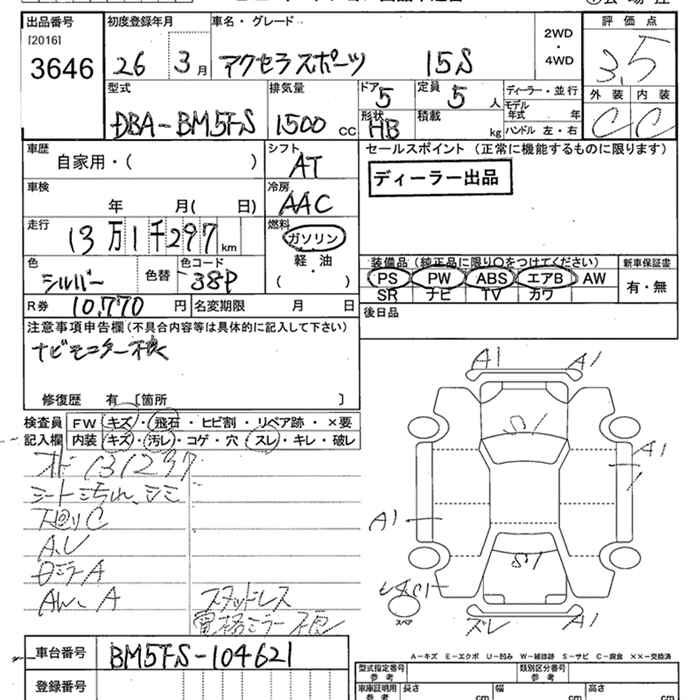 出品番号 初度登録年月 車名・グレード 2WD ・ 4WD 評価点
[2016]
3646 26 3月 アクセラスポーツ 15S 3.5
外装 内装
C C
型式 排気量 ドア 定員 ディーラー・並行
DBA-BM5FS 1500 CC 5 5 人 モデル年式 年
形状 積載 ハンドル 左・右
HB kg
車歴 シフト セールスポイント (正常に機能するものに限ります)
自家用・( ) AT
ディーラー出品
車検 冷房
年 月( 日) AAC
走行 燃料
13万1千297 km ガソリン
軽・油
( )
装備品 (純正品に限り○をつけてください) 新車保証書
PS PW ABS エアB AW 有・無
SR ナビ TV カワ
色 色替 色コード
シルバー 38P
後日品
R券 10,770 円 名変期限 月 日
注意事項申告欄(不具合内容等は具体的に記入して下さい)
ナビモニター不良
修復歴 有 [箇所 ]
検査員 FW キズ・飛石・ヒビ割・リペア跡・×要
記入欄 内装 キズ・汚レ・コゲ・穴・スレ・キレ・破レ
131297
シート汚れ、シミ
下回りC
A.U
ミラーA
AW. A
スタッドレス
電格ミラー不良
A1 A1
S1
A1
A1
S1
スレ A1
スペア
A-キズ E-エクボ U-凹み W-補修跡 S-サビ C-腐食 ××-交換済
車台番号 BM5FS-104621
型式指定番号 参考 類別区分番号 参考
登録番号 車庫証明用 参考 長さ cm 幅 cm 高さ cm